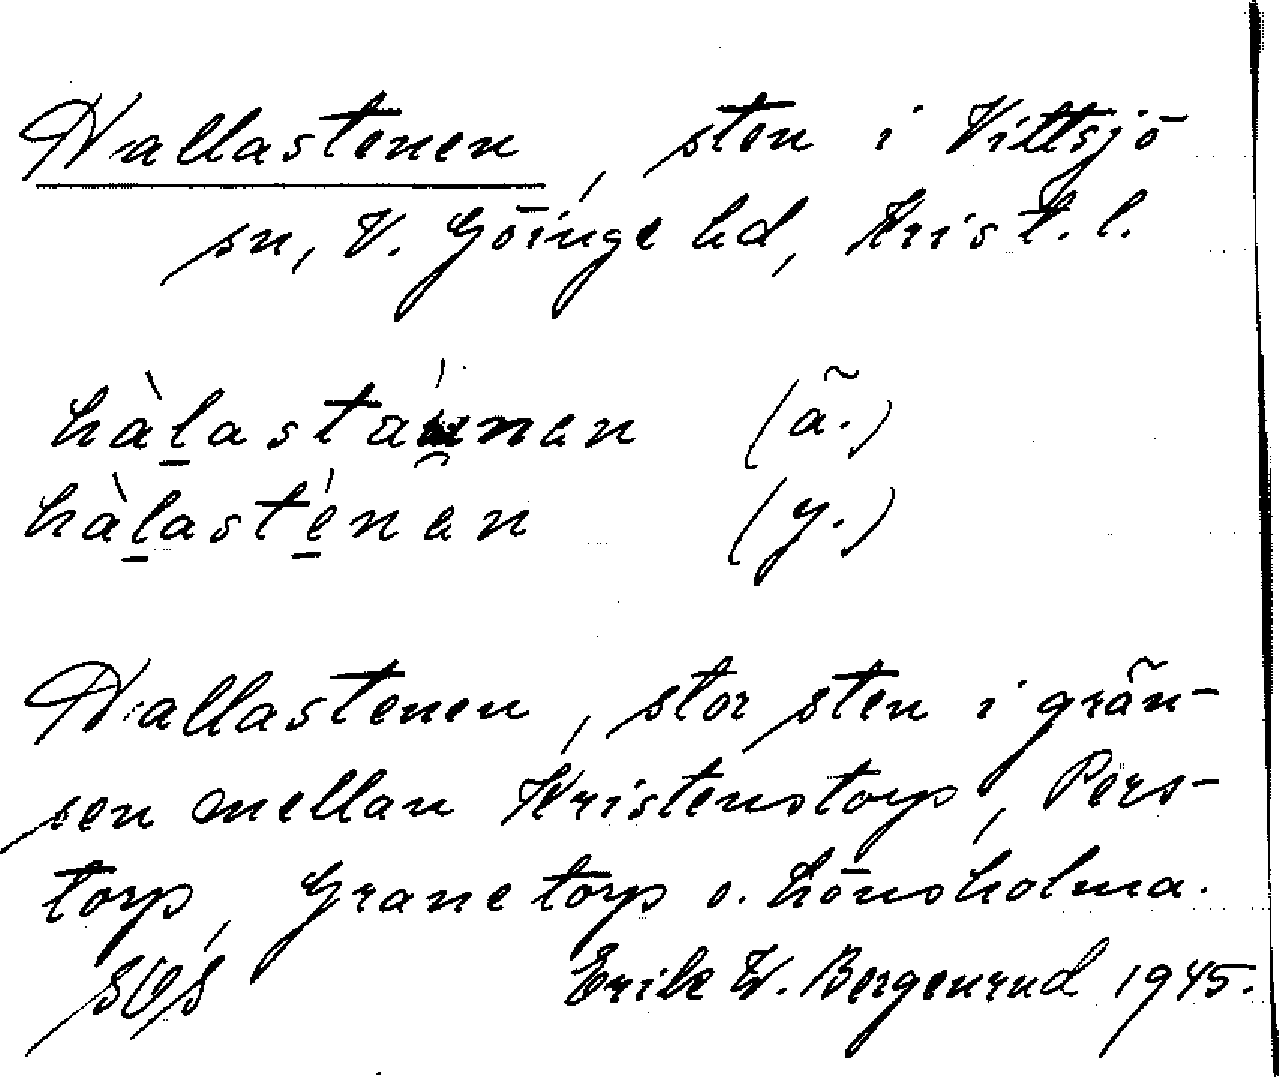 Hallastenen, sten i Vittsjö
sn, V. Göinge hd, Krist. l.
hàlastáinen (ä.)
hàlasténen (y.)
Hallastenen, stor sten i grän-
sen mellan Kristenstorp, Pers-
torp, Granetorp o. hönsholma.
Erik W. Bergenrud 1945.